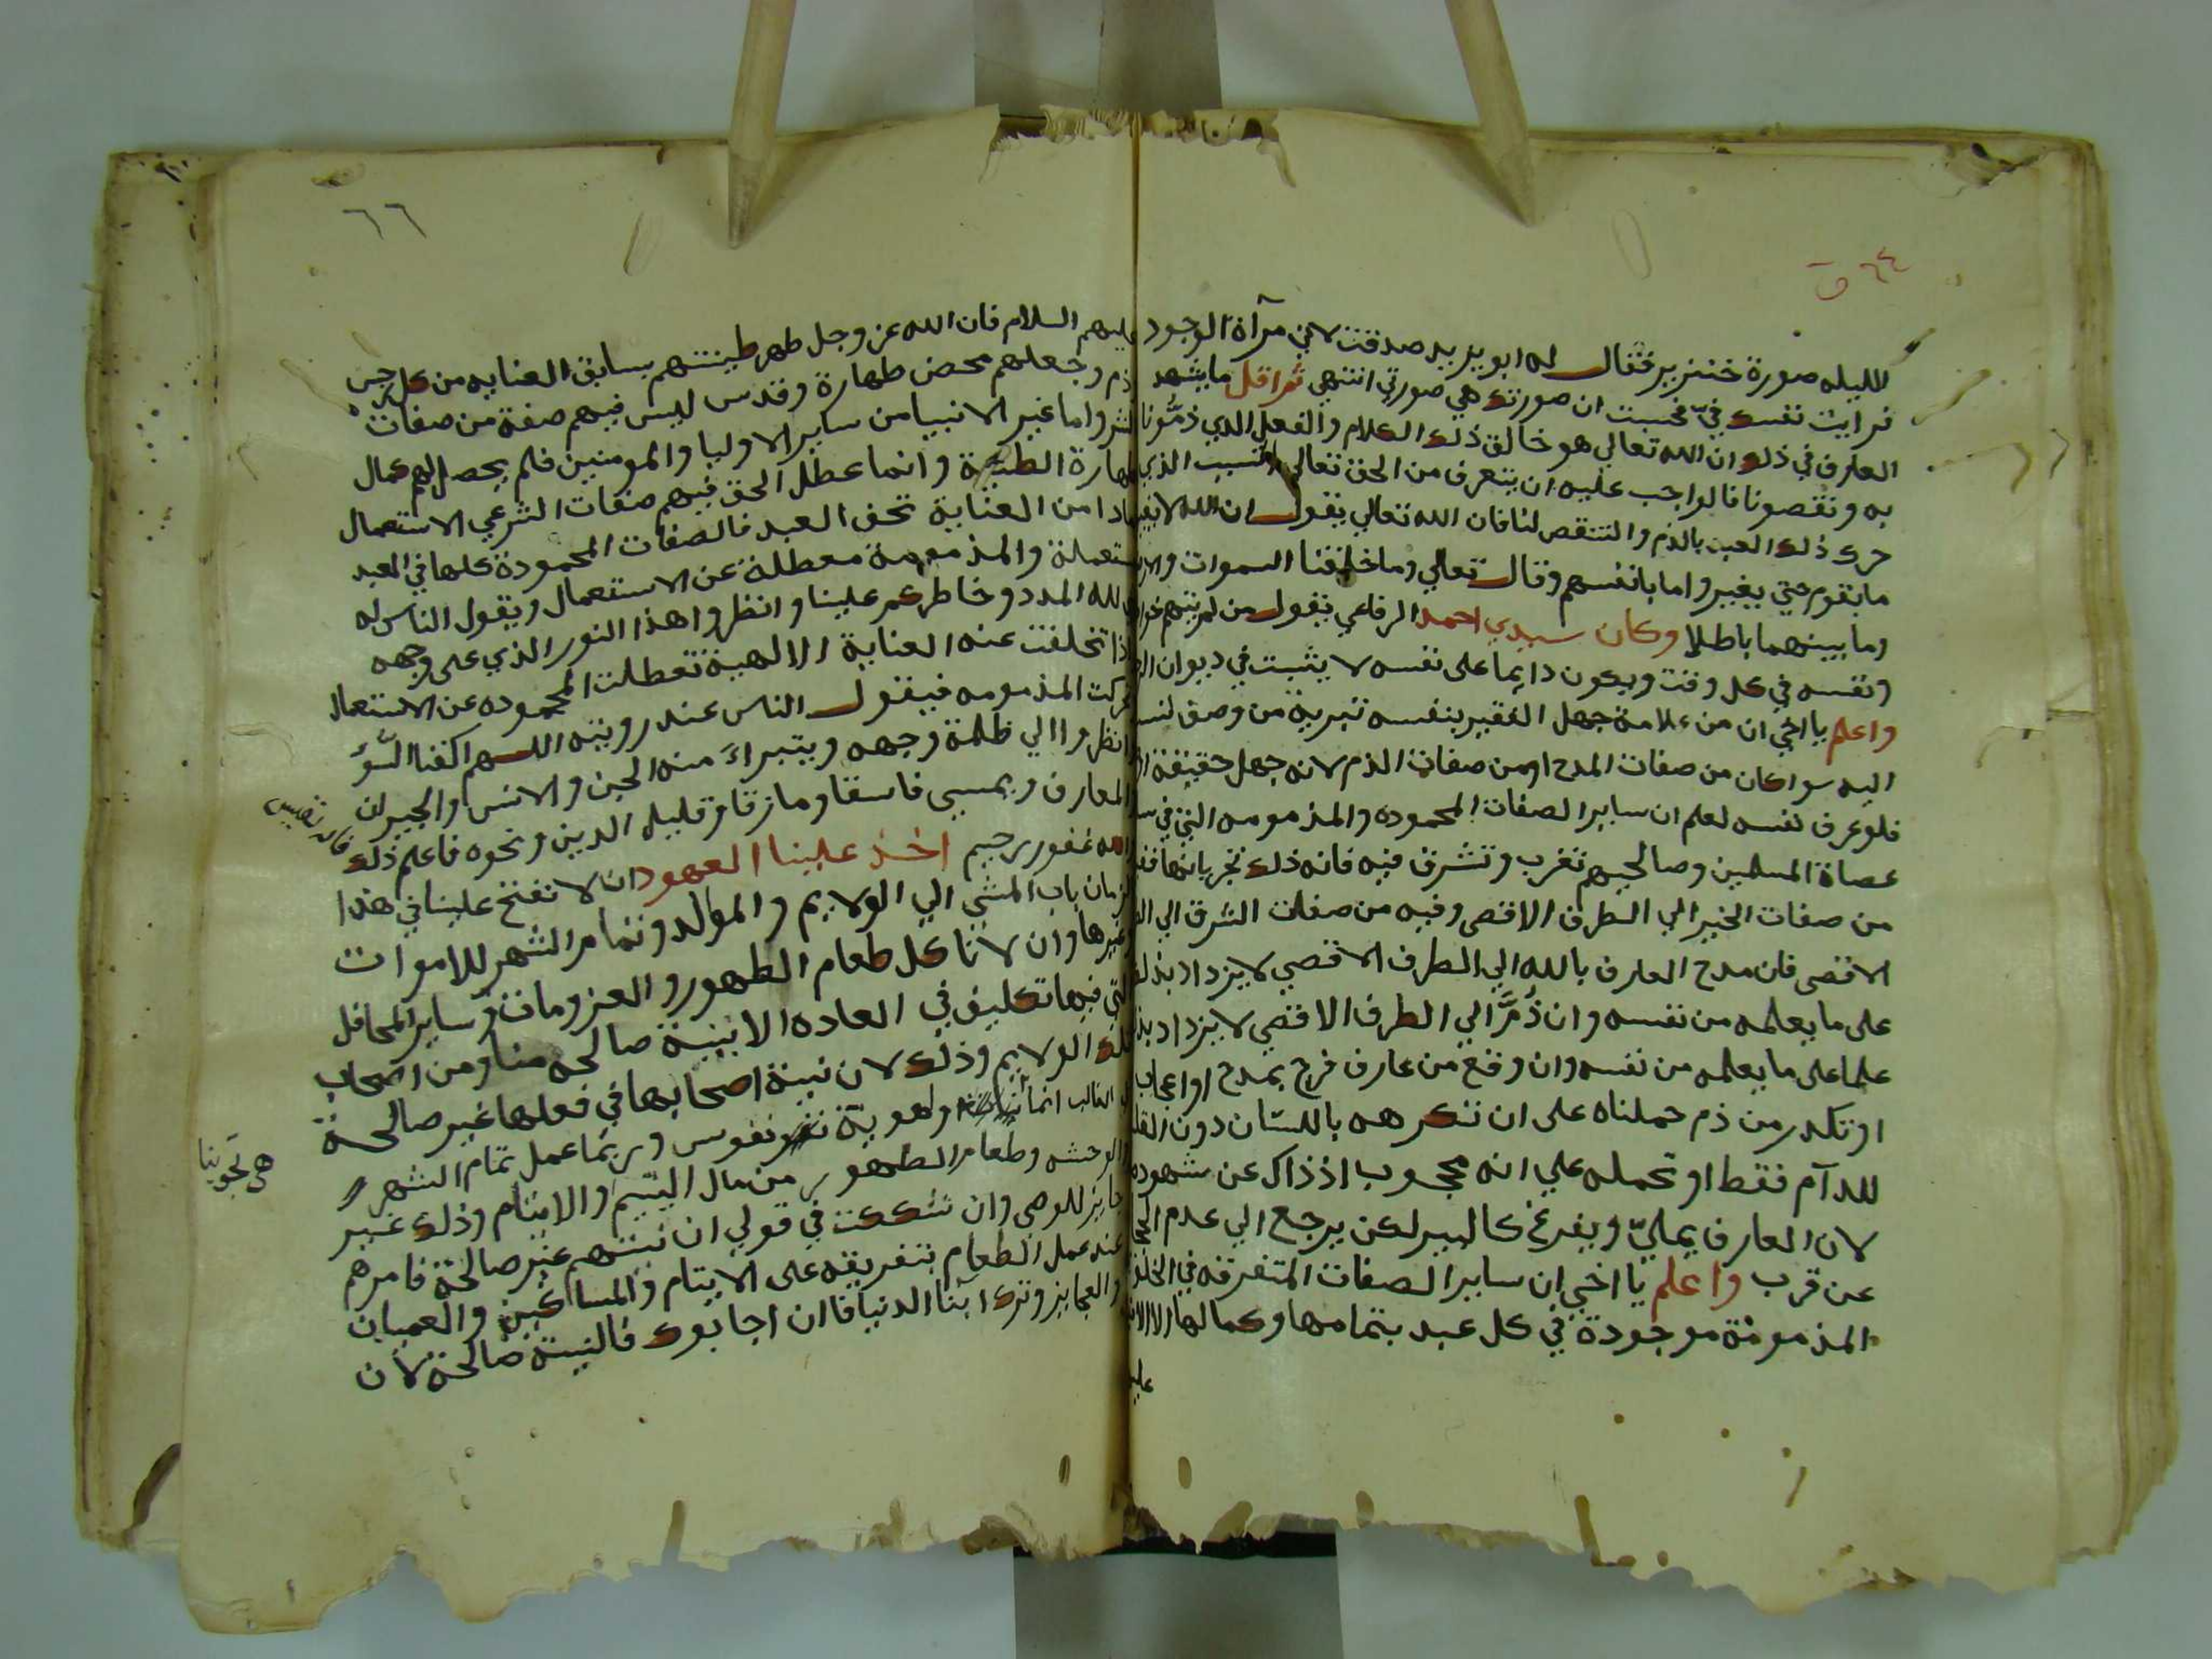 ٦٤ ق
الليله صورة خنزير فقال له ابو يزيد صدقت لاني مرآة الوجود
فرايت نفسك فيّ فحسبت ان صورتك هي صورتي انتهي ثم اقل ما يشهد
العارف في ذلك ان الله تعالي هو خالق ذلك الكلام والفعل الذي ذمُّونا
به ونقصونا فالواجب عليه ان يتعرف من الحق تعالي السبب الذي
حرك ذلك العبد بالذم والتنقص لنا فان الله تعالي يقول ان الله لا يغير
ما بقوم حتي يغيروا ما بانفسهم وقال تعالي وما خلقنا السموات والارض
وما بينهما باطلا وكان سيدي احمد الرفاعي يقول من لم يتهم خواطره
ونفسه في كل وقت ويكون دايما على نفسه لا يثبت في ديوان
واعلم يا اخي ان من علامة جهل الفقير بنفسه تبرية من وصف
اليه سوا كان من صفات المدح او من صفات الذم لانه جهل حقيقة
فلو عرف نفسه لعلم ان ساير الصفات المحموده والمذمومه التي في
عصاة المسلمين وصالحيهم تغرب وتشرق فيه فانه ذلك
من صفات الخير الي الطرف الاقصى وفيه من صفات الشرق الي
الاقصى فان مدح العارف بالله الي الطرف الاقصي لا يزداد بذلك
على ما يعلمه من نفسه وان ذُمَّ الي الطرف الاقصي لا يزداد
علما على ما يعلمه من نفسه وان وقع من عارف فرح بمدح او اعجاب
او تكدر من ذم حملناه على ان تكرهه باللسان دون
للدآم فقط او نحمله علي انه محجوب اذ ذاك عن شهوده
لان العارف يمليّ ويفرغ كالبير لكن يرجع الي عدم
عن قرب واعلم يا اخي ان ساير الصفات المتفرقه في
المذمومة موجودة في كل عبد بتمامها وكمالها الا
عليهم
٦٦
عليهم السلام فان الله عز وجل طهر طينتهم بسابق العنايه من كل رجس
وذم وجعلهم محض طهارة وقدس ليس فيهم صفة من صفات
الشر واما غير الانبيا من ساير الاوليا والمومنين فلم يحصل لهم كمال
طهارة الطينة وانما عطل الحق فيهم صفات الشر عن الاستعمال
فمادامن العناية تحف العبد فالصفات المحمودة كلها في العبد
مستعملة والمذمومة معطلة عن الاستعمال ويقول الناس له
لله المدد وخاطركم علينا وانظروا هذا النور الذي على وجهه
واذا تخلفت عنه العناية الالهية تعطلت المحموده عن الاستعمال
وتحركت المذمومه فيقول الناس عند رويته اللهم اكفنا السّؤ
انظروا الي ظلمة وجهه ويتبراءَ منه الجن والانس والجيران
والمعارف ويمسي فاسقا ومازقا قليله الدين ونحوه فاعلم ذلك فانه نفيس
والله غفور رحيم اخذ علينا العهود ان لا نفتح علينا في هذا
الزمان باب المشي الي الولايم والموالد وتمام الشهر للاموات
وغيرها وان لا ناكل طعام الطهور والعزومات وساير المحافل
التي فيها تكليف في العاده الا بنية صالحه منا ومن اصحاب
تلك الولايم وذلك لان نية اصحابها في فعلها غير صالحة
في الغالب انما ولهوية نفوس وربما عمل تمام الشهر
والوحشه وطعام الطهور من مال اليتيم والايتام وذلك غير
جايز للوصي وان شككت في قولي ان نيتهم غير صالحة فامرهم
عند عمل الطعام بتفريقه على الايتام والمساكين والعميان
والعجايز وترك ابنا الدنيا فان اجابوك فالنية صالحة لان